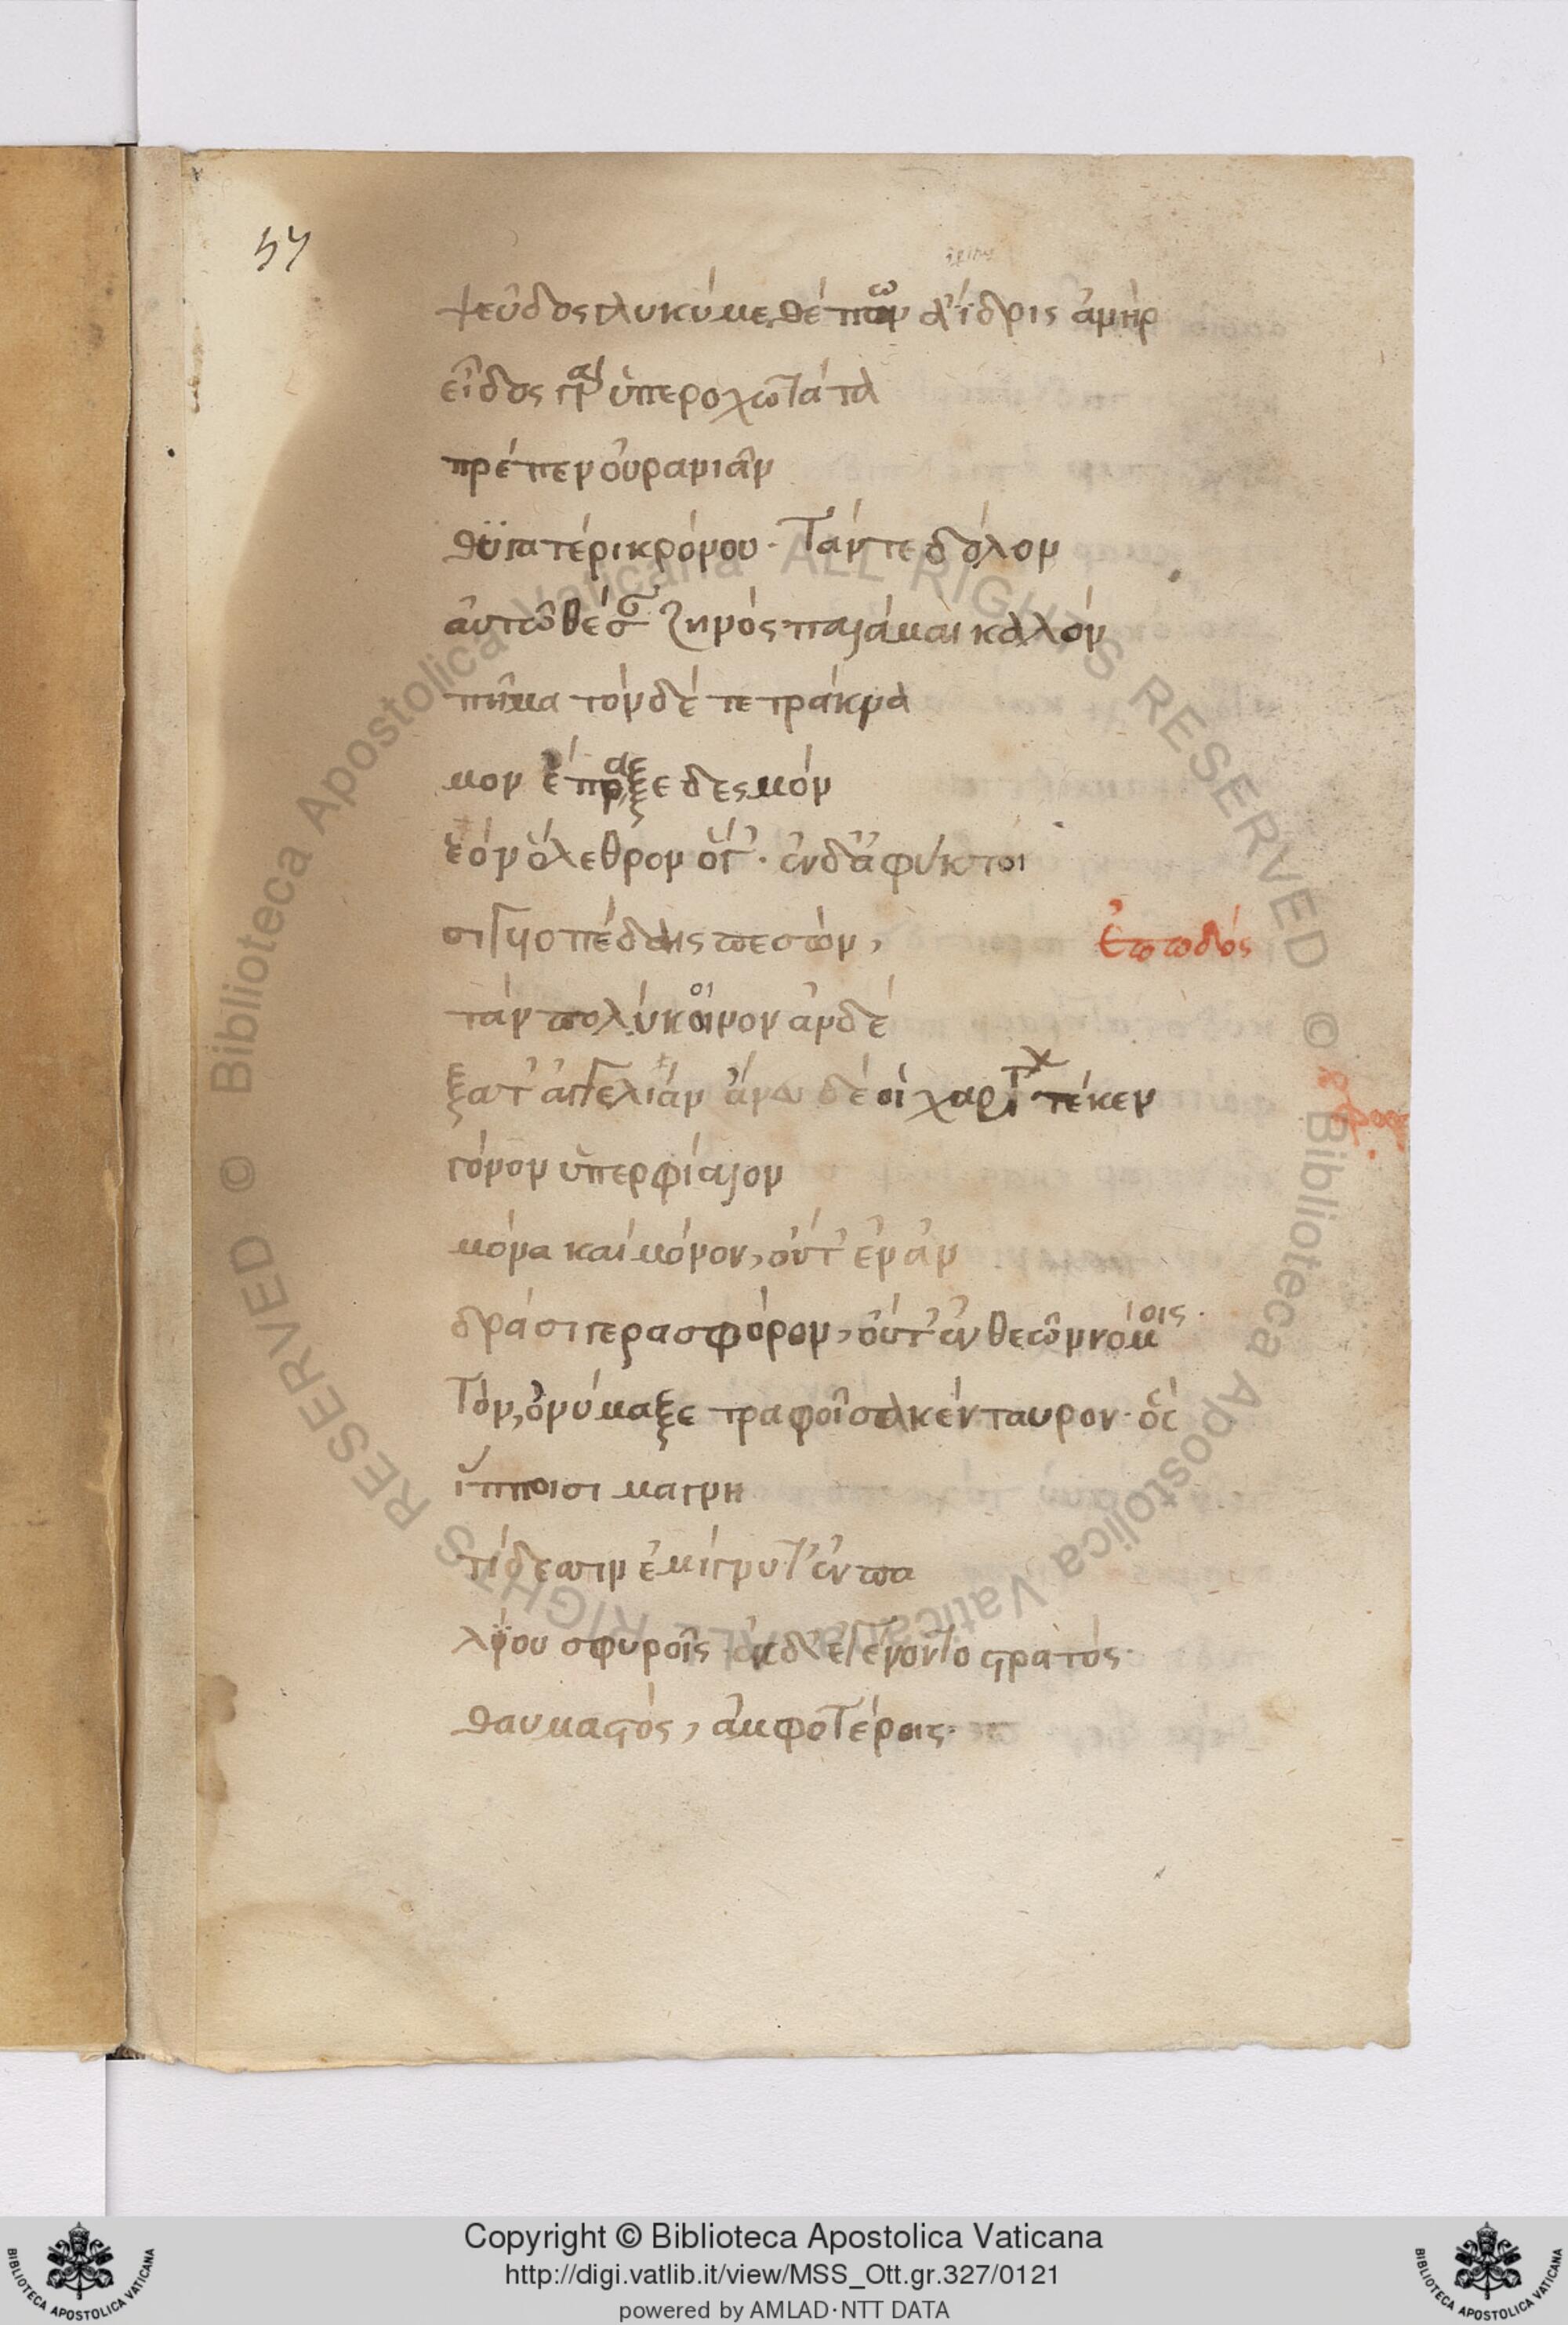 57
ψεῦδος γλυκύ μεθέπων ἄϊδρις ἀνὴρ
εἶδος γὰρ ὑπεροχωτάτα
πρέπεν οὐρανιᾶν
θϋγατέρι κρόνου· Τάν τε δόλον
αὐτῶ θέσαν ζηνὸς παλάμαι καλόν
πῆμα τὸν δέ τετράκνα
μον ἔπραξε δεσμόν
ἑὸν ὄλεθρον ὅγ'· ἐν δ' ἀφύκτοι
σι γυιοπέδαις πεσὼν,
ἐπωδός
τὰν πολύκοινον ἀνδέ
ξατ' ἀγγελίαν ἄνευ δέ οἱ χαρίτ τέκεν
γόνον ὑπερφίαλον
μόνα καὶ μόνον, οὔτ' ἐν ἀν
δράσι γερασφόρον, οὔτ' ἐν θεῶν νόμοις·
Τὸν, ὀνύμαξε τραφοῖσα κένταυρον· ὃς
ἵπποισι μαγνη
τίδεσσιν ἐμίγνυτ' ἐν πα
λΐου σφυροῖς· ἐκ δ' ἐγένοντο στρατὸς·
θαυμαστὸς, ἀμφοτέροις·
Copyright © Biblioteca Apostolica Vaticana
http://digi.vatlib.it/view/MSS_Ott.gr.327/0121
powered by AMLAD·NTT DATA
BIBLIOTECA APOSTOLICA VATICANA
BIBLIOTECA APOSTOLICA VATICANA
Biblioteca Apostolica Vaticana ALL RIGHTS RESERVED © Biblioteca Apostolica Vaticana ALL RIGHTS RESERVED ©